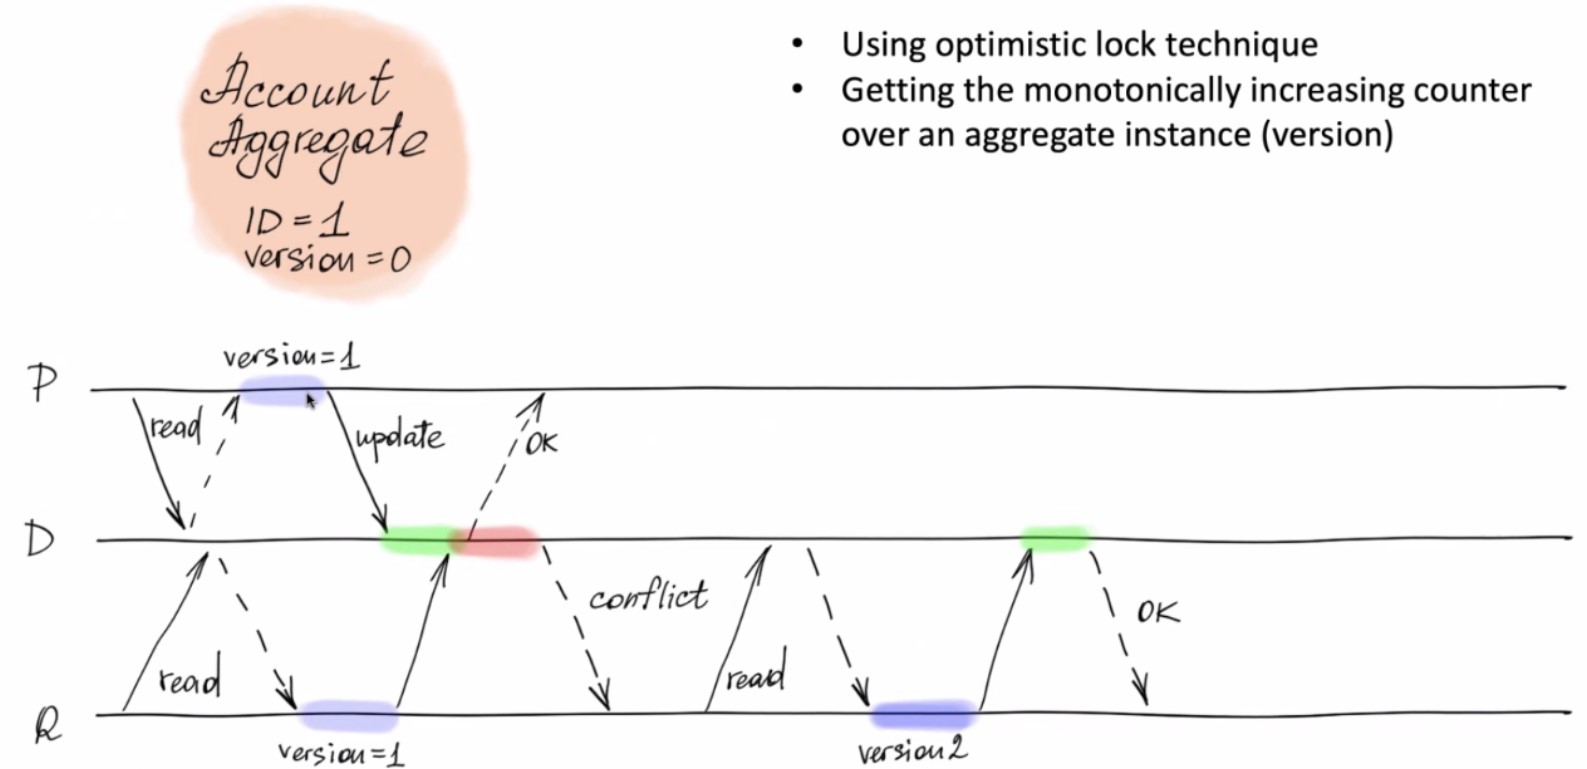 Account
Aggregate
ID = 1
version = 0
• Using optimistic lock technique
• Getting the monotonically increasing counter
over an aggregate instance (version)
version=1
P
read
update
OK
D
conflict
OK
read
read
R
version=1
version 2